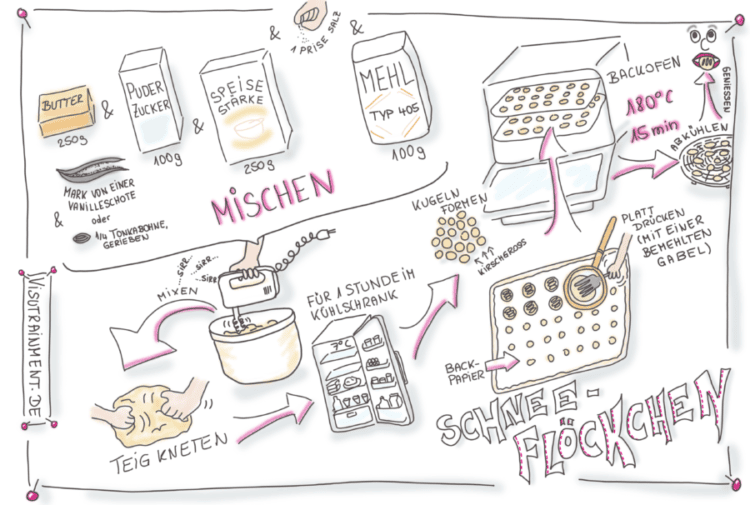 BUTTER
250g
&
PUDER
ZUCKER
100g
&
SPEISE
STÄRKE
250g
&
1 PRISE SALZ
&
MEHL
TYP 405
100g
MARK VON EINER
VANILLESCHOTE
&
oder
1/4 TONKABOHNE,
GERIEBEN
MISCHEN
SIRR...
SIRR...
SIRR
MIXEN
TEIG KNETEN
FÜR 1 STUNDE IM
KÜHLSCHRANK
7°C
KUGELN
FORMEN
KIRSCHGROSS
PLATT
DRÜCKEN
(MIT EINER
BEMEHLTEN
GABEL)
BACK-
PAPIER
BACKOFEN
180°C
15min
ABKÜHLEN
GENIESSEN
SCHNEE-
FLÖCKCHEN
VISUTRAINMENT.DE